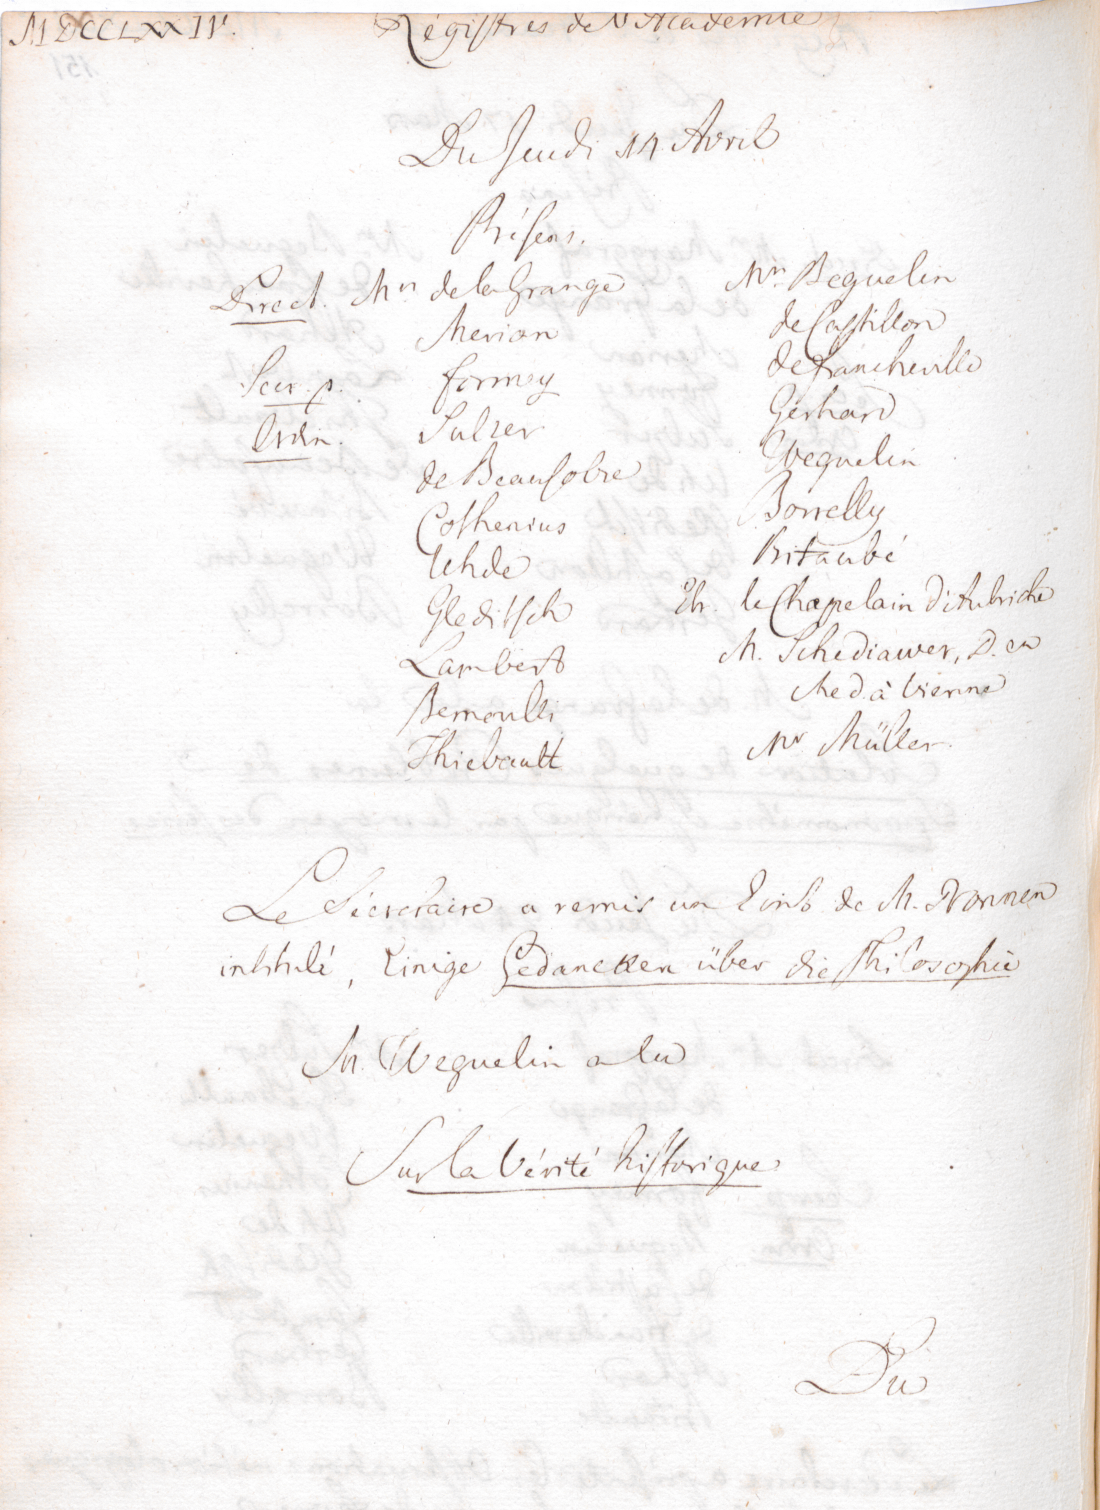 MDCCLXXIV.
Régistres de l'Academie
Du Jeudi 14 Avril
Présens.
Direct. Mrs de la Grange
Merian
Secr. p. Formey
Ordin. Sulzer
de Beausobre
Cothenius
Uhde
Gleditsch
Lambert
Bernoulli
Thiebault
Mrs Beguelin
de Castillon
de Francheville
Gerhard
Weguelin
Borrelly
Bitaubé
Etr. le Chapelain d'Aubriche
M. Schediawer, D. en
Med. à Vienne
Mr Müller.
Le Sécretaire a remis un Ecrit de M.
intitulé, Einige Gedancken über die Philosophie
M. Weguelin a lu
Sur la Vérité historique
Du